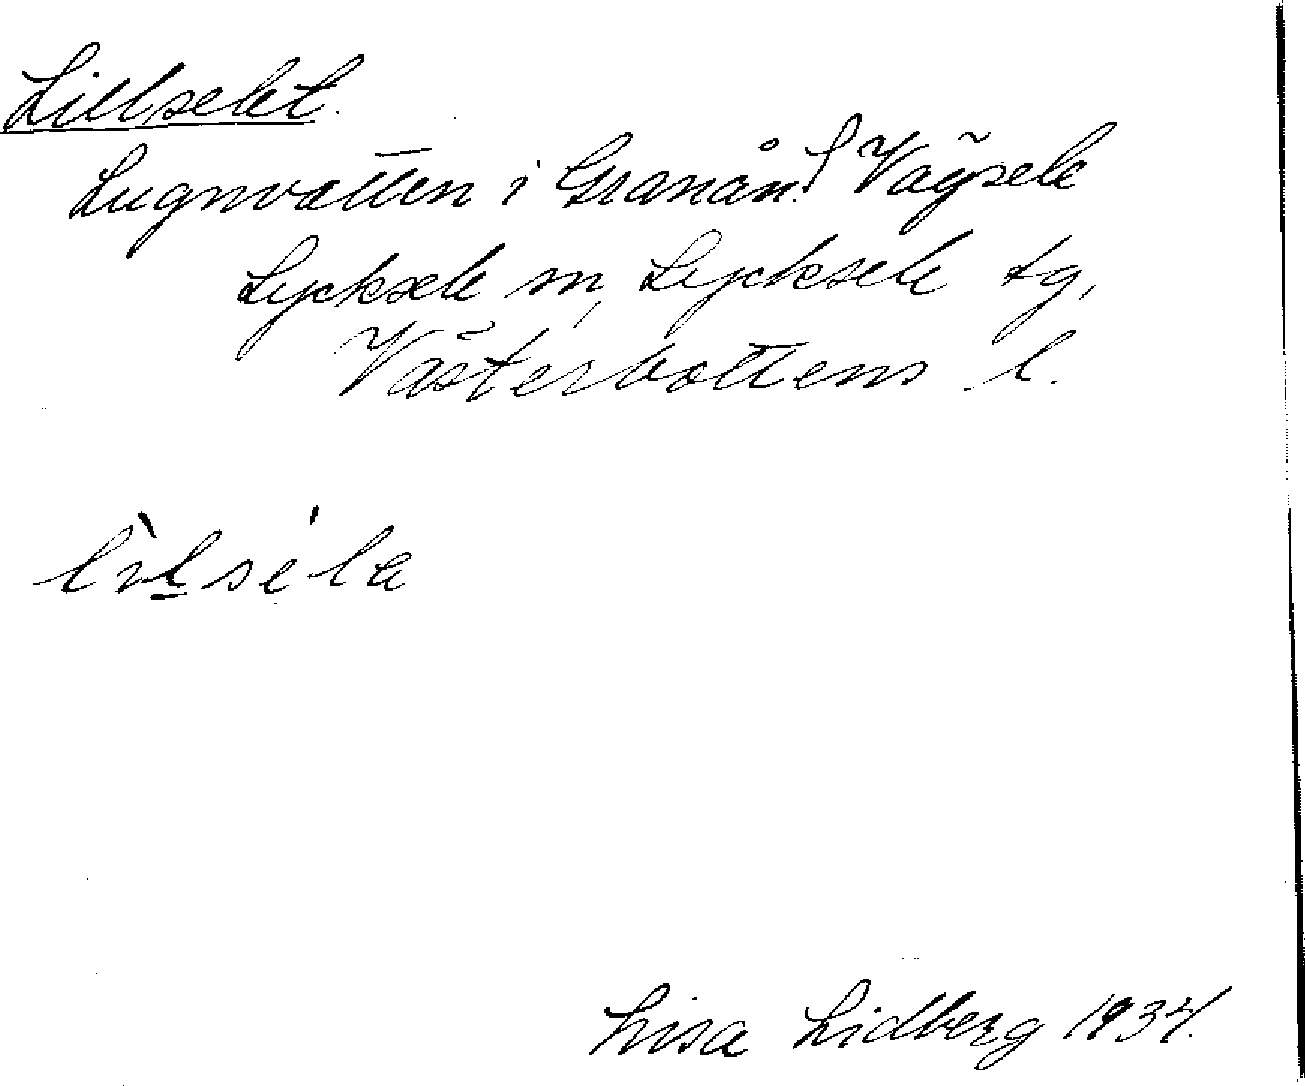 Lillselet.
Lugnvatten i Granån. Vägsele
Lycksele sn, Lycksele tg,
Västerbottens l.
Lisa Lidberg 1934.